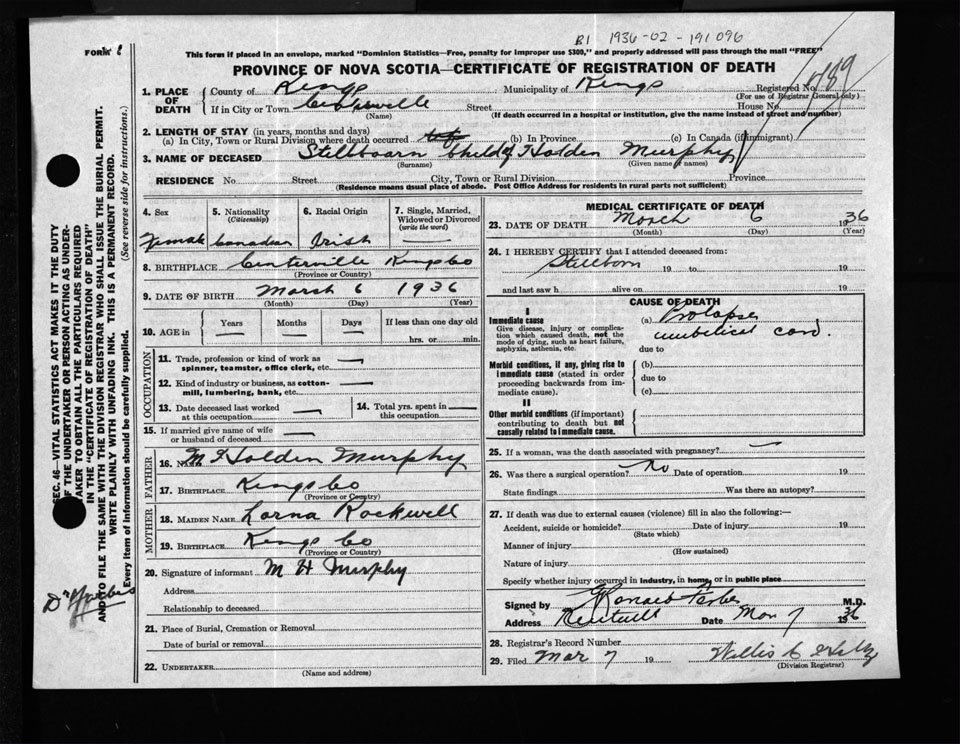 FORM 6
B1 1936-02-191096
This form if placed in an envelope, marked "Dominion Statistics—Free, penalty for improper use $300," and properly addressed will pass through the mail "FREE"
PROVINCE OF NOVA SCOTIA—CERTIFICATE OF REGISTRATION OF DEATH
1. PLACE OF DEATH
County of Kings Municipality of Kings Registered No.
(For use of Registrar General only)
If in City or Town Centreville Street House No.
(Name) (If death occurred in a hospital or institution, give the name instead of street and number)
2. LENGTH OF STAY (in years, months and days)
(a) In City, Town or Rural Division where death occurred (b) In Province (c) In Canada (if immigrant)
3. NAME OF DECEASED Stillboarn Child of Holden Murphy
(Surname) (Given name or names)
RESIDENCE No Street City, Town or Rural Division Province
(Residence means usual place of abode. Post Office Address for residents in rural parts not sufficient)
4. Sex
Female
5. Nationality
(Citizenship)
Canadian
6. Racial Origin
Irish
7. Single, Married, Widowed or Divorced
(write the word)
8. BIRTHPLACE Centerville Kings Co
(Province or Country)
9. DATE OF BIRTH March 6 1936
(Month) (Day) (Year)
10. AGE in Years Months Days If less than one day old
hrs. or min.
OCCUPATION
11. Trade, profession or kind of work as
spinner, teamster, office clerk, etc.
12. Kind of industry or business, as cotton-
mill, lumbering, bank, etc.
13. Date deceased last worked
at this occupation
14. Total yrs. spent in
this occupation
15. If married give name of wife
or husband of deceased
FATHER
16. NAME M Holden Murphy
17. BIRTHPLACE Kings Co
(Province or Country)
MOTHER
18. MAIDEN NAME Lorna Rockwell
19. BIRTHPLACE Kings Co
(Province or Country)
20. Signature of informant M H Murphy
Address
Relationship to deceased
21. Place of Burial, Cremation or Removal
Date of burial or removal
22. UNDERTAKER
(Name and address)
MEDICAL CERTIFICATE OF DEATH
23. DATE OF DEATH March 6 1936
(Month) (Day) (Year)
24. I HEREBY CERTIFY that I attended deceased from:
Stillborn 19 to 19
and last saw h alive on 19
CAUSE OF DEATH
I
Immediate cause
Give disease, injury or complica-
tion which caused death, not the
mode of dying, such as heart failure,
asphyxia, asthenia, etc.
(a) Prolapse
umbelical cord.
due to
Morbid conditions, if any, giving rise to
immediate cause (stated in order
proceeding backwards from im-
mediate cause).
(b)
due to
(c)
II
Other morbid conditions (if important)
contributing to death but not
causally related to immediate cause.
25. If a woman, was the death associated with pregnancy?
26. Was there a surgical operation? No Date of operation 19
State findings Was there an autopsy?
27. If death was due to external causes (violence) fill in also the following:—
Accident, suicide or homicide? Date of injury 19
(State which)
Manner of injury
(How sustained)
Nature of injury
Specify whether injury occurred in industry, in home, or in public place
Signed by M.D.
Address Kentville Date Mar 7 1936
28. Registrar's Record Number
29. Filed Mar 7 19 Willis C
(Division Registrar)
SEC. 46—VITAL STATISTICS ACT MAKES IT THE DUTY
OF THE UNDERTAKER OR PERSON ACTING AS UNDER-
TAKER TO OBTAIN ALL THE PARTICULARS REQUIRED
IN THE "CERTIFICATE OF REGISTRATION OF DEATH"
AND TO FILE THE SAME WITH THE DIVISION REGISTRAR WHO SHALL ISSUE THE BURIAL PERMIT.
WRITE PLAINLY WITH UNFADING INK. THIS IS A PERMANENT RECORD.
Every item of information should be carefully supplied. (See reverse side for instructions.)